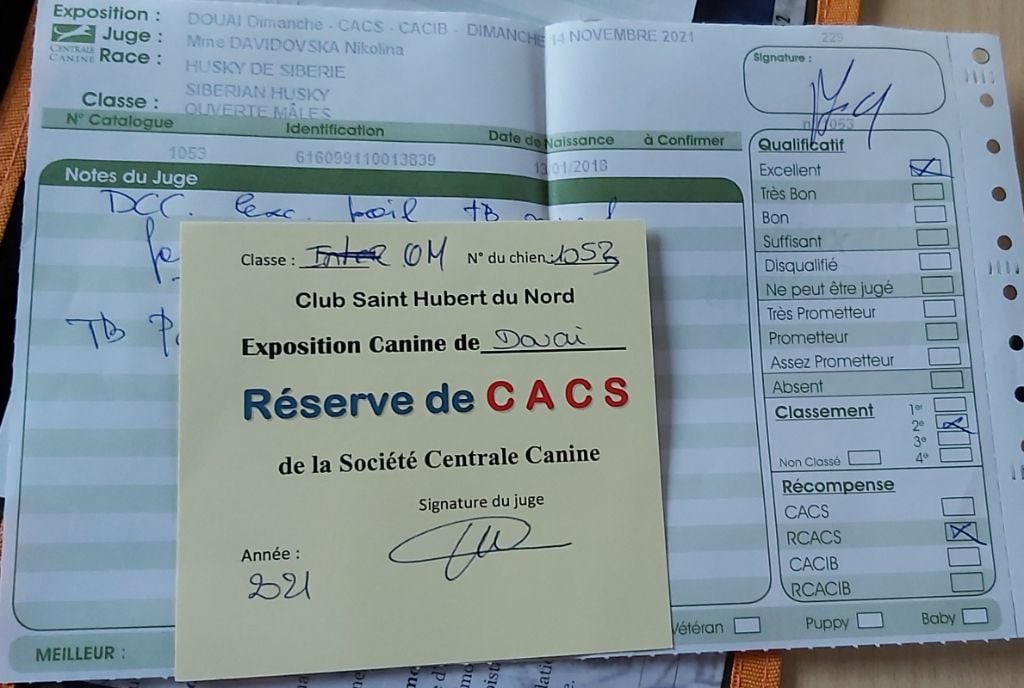 Exposition : DOUAI Dimanche - CACS - CACIB - DIMANCHE 14 NOVEMBRE 2021 229
CENTRALE CANINE
Juge : Mme DAVIDOVSKA Nikolina
Race : HUSKY DE SIBERIE
SIBERIAN HUSKY
Classe : OUVERTE MÂLES
N° Catalogue Identification Date de Naissance à Confirmer
1053 616099110013839 13/01/2018
Notes du Juge
DCC. exc. poil TB
TB
MEILLEUR :
Classe : Inter OM N° du chien 1053
Club Saint Hubert du Nord
Exposition Canine de Douai
Réserve de CACS
de la Société Centrale Canine
Signature du juge
Année :
2021
Signature :
n° 1053
Qualificatif
Excellent
Très Bon
Bon
Suffisant
Disqualifié
Ne peut être jugé
Très Prometteur
Prometteur
Assez Prometteur
Absent
Classement 1er
2e
3e
Non Classé 4e
Récompense
CACS
RCACS
CACIB
RCACIB
Vétéran Puppy Baby